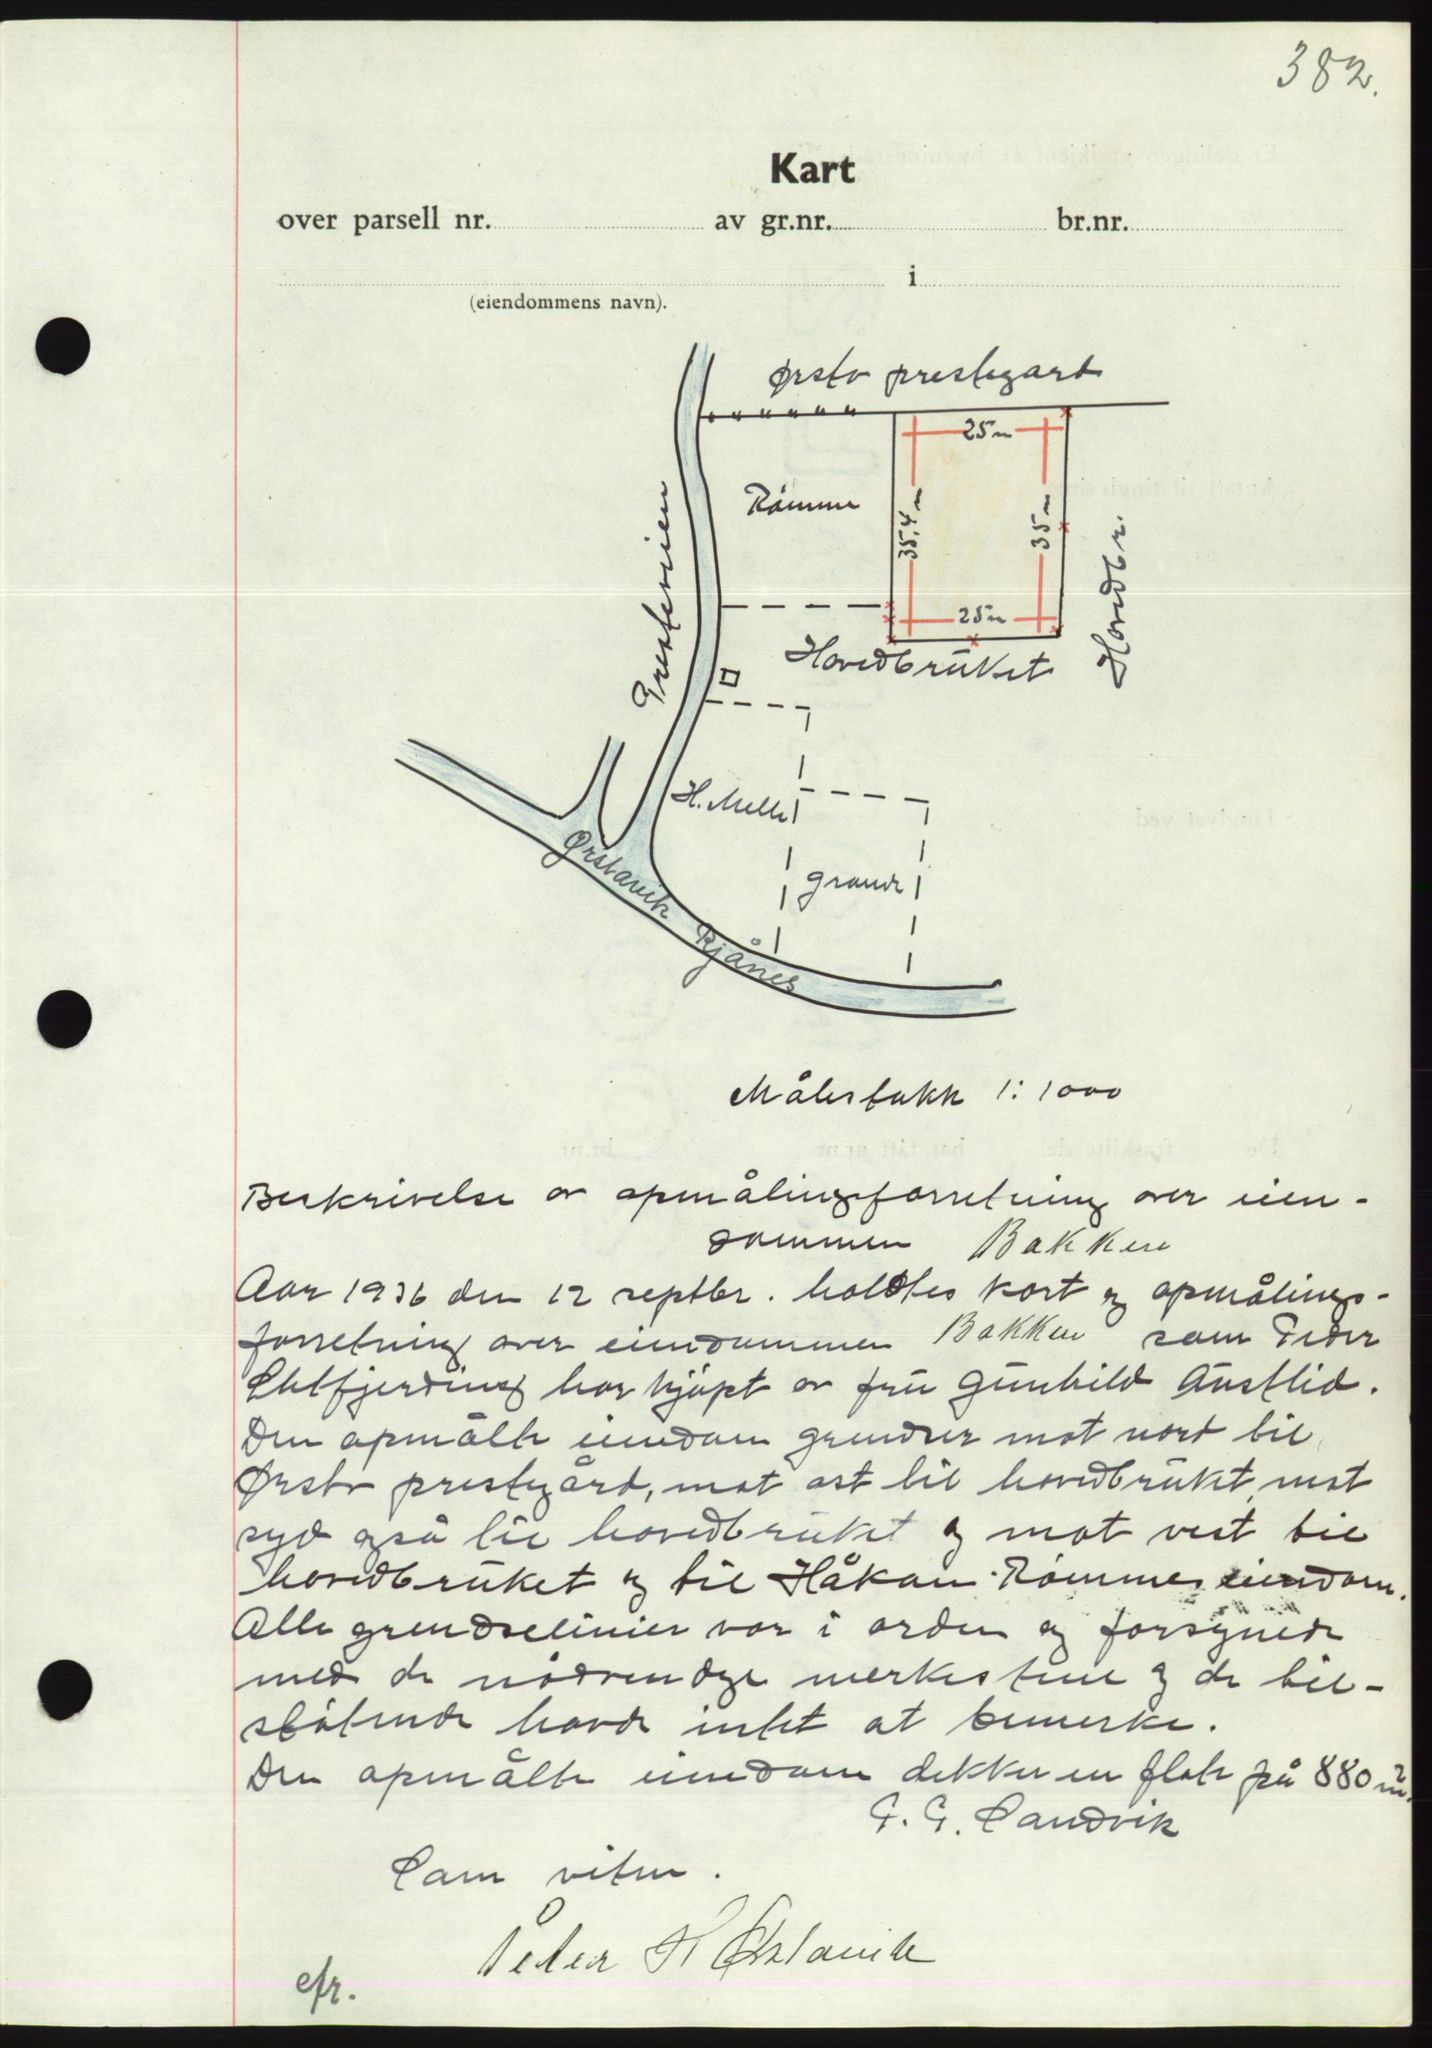 382.
Kart
over parsell nr. av gr.nr. br.nr.
i
(eiendommens navn).
Ørsta prestegard
25 m
Rømme
35,4 m
35 m
Hovedbr.
Prestevien
25 m
Hovedbrüket
H. Melle
grande
Ørstavik Rjånes
Målestokk 1:1000
Beskrivelse av opmålingsforretning over eien-
dommen Bakken
Aar 1936 den 12 septbr. holdtes kart og opmålings-
forretning over eiendommen Bakken som Peder
har kjøpt av frü Günhild Aüstlid.
Den opmålte eiendom grendser mot nord til
Ørsta prestegård, mot øst til hovedbrüket, mot
syd også til hovedbrüket og mot vest til
hovedbrüket og til Håkon Rømmes eiendom.
Alle grendselinier var i orden og forsynede
med de nödvendige merkestene og de til-
stötende havde intet at bemerke.
Den opmålte eiendom dekker en flate på 880 m².
G. G. Sandvik
Som viten.
Peter K Ørstavik
efr.